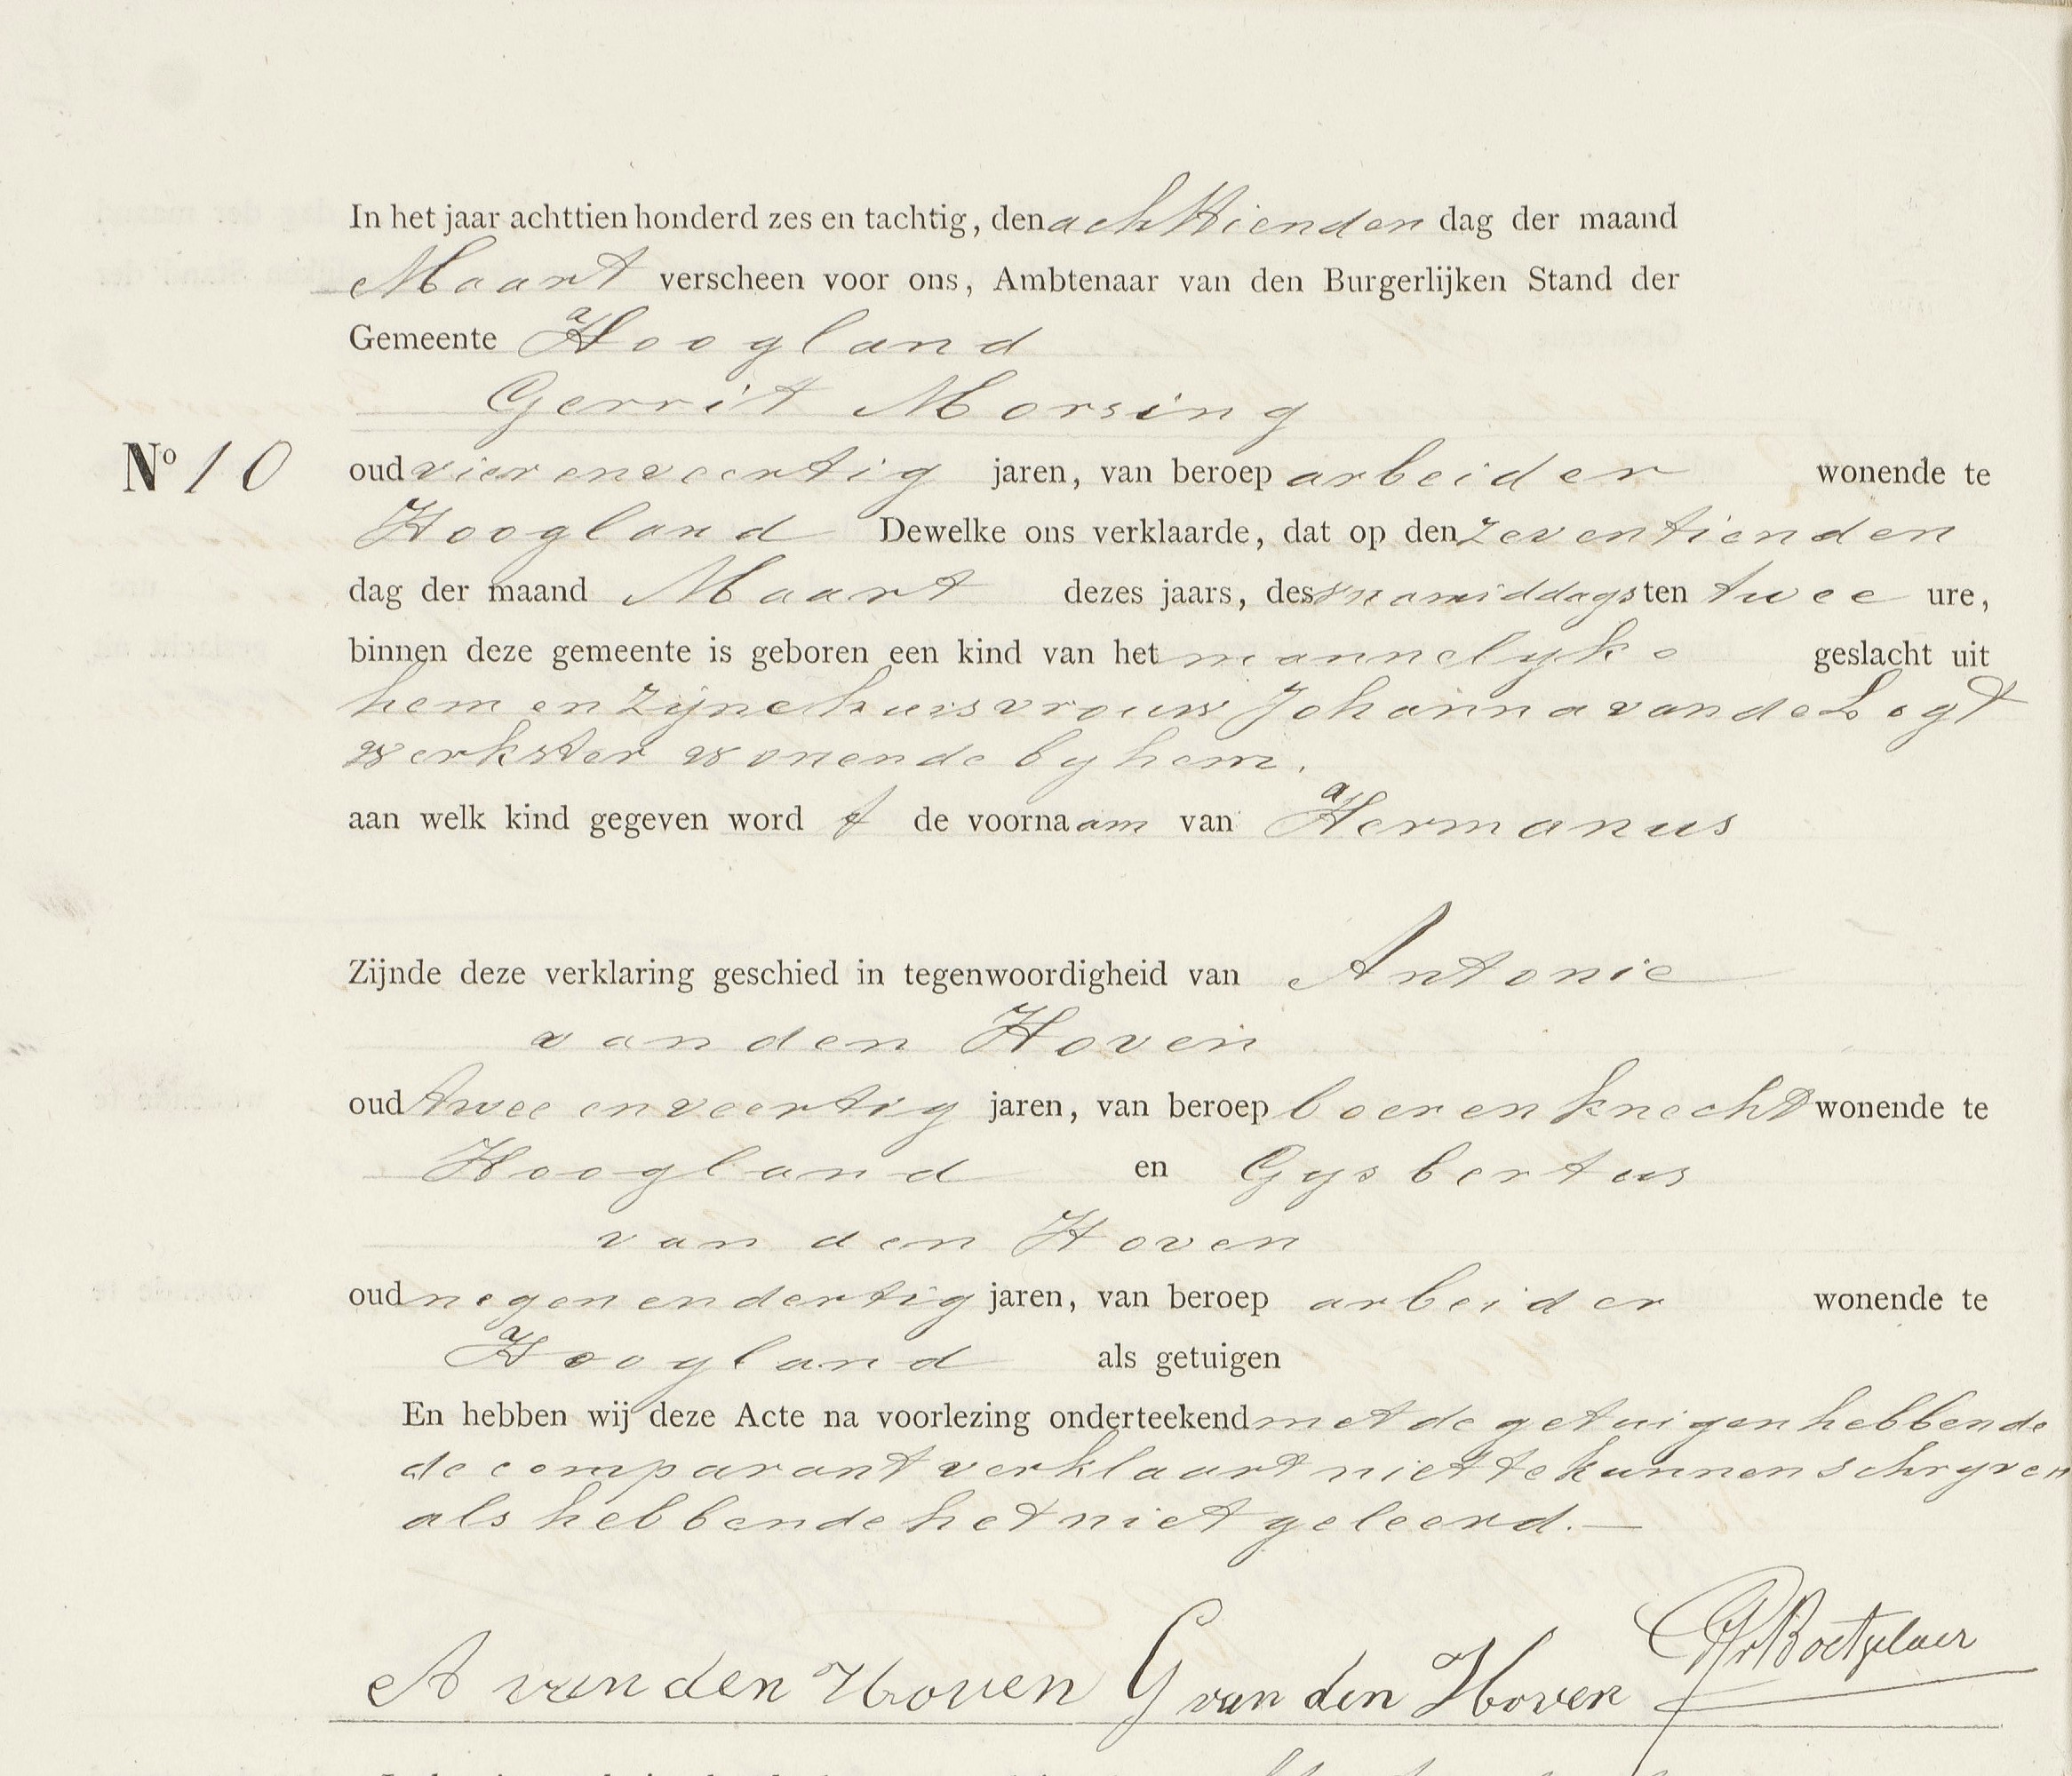 In het jaar achttien honderd zes en tachtig, den achttienden dag der maand
Maart verscheen voor ons, Ambtenaar van den Burgerlijken Stand der
Gemeente Hoogland
Gerrit Morsing
No 10 oud vier en veertig jaren, van beroep arbeider wonende te
Hoogland Dewelke ons verklaarde, dat op den zeventienden
dag der maand Maart dezes jaars, des namiddags ten twee ure,
binnen deze gemeente is geboren een kind van het mannelyke geslacht uit
hem en zijne huisvrouw Johanna van de Logt
werkster wonende by hem.
aan welk kind gegeven word t de voornaam van Hermanus
Zijnde deze verklaring geschied in tegenwoordigheid van Antonie
van den Hoven
oud twee en veertig jaren, van beroep boerenknecht wonende te
Hoogland en Gysbertus
van den Hoven
oud negen en dertig jaren, van beroep arbeider wonende te
Hoogland als getuigen
En hebben wij deze Acte na voorlezing onderteekend met de getuigen hebbende
de comparant verklaart niet te kunnen schryven
als hebbende het niet geleerd.—
A van den Hoven G van den Hoven